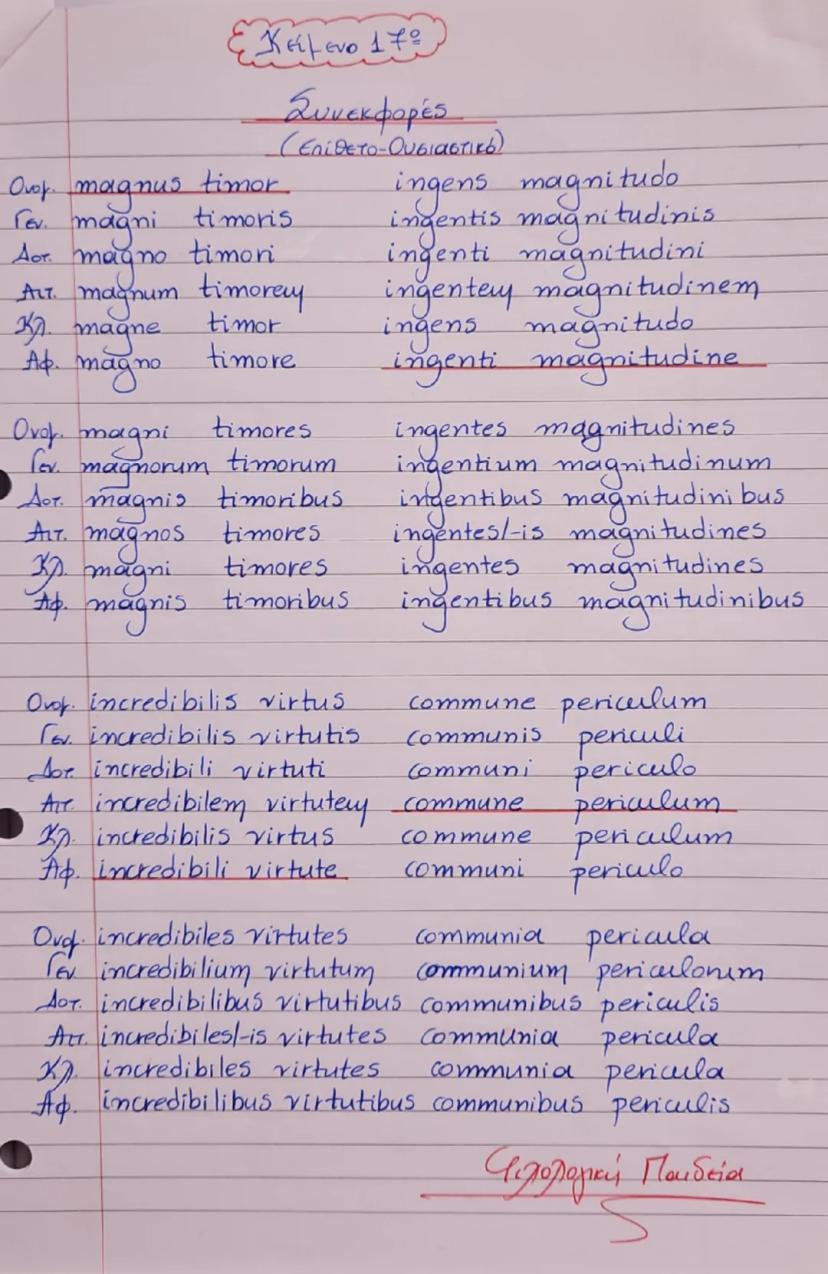 Κείμενο 17º
Συνεκφορές
(Επίθετο-Ουσιαστικό)
Ονομ. magnus timor ingens magnitudo
Γεν. magni timoris ingentis magnitudinis
Δοτ. magno timori ingenti magnitudini
Αιτ. magnum timorem ingentem magnitudinem
Κλ. magne timor ingens magnitudo
Αφ. magno timore ingenti magnitudine
Ονομ. magni timores ingentes magnitudines
Γεν. magnorum timorum ingentium magnitudinum
Δοτ. magnis timoribus ingentibus magnitudinibus
Αιτ. magnos timores ingentes/-is magnitudines
Κλ. magni timores ingentes magnitudines
Αφ. magnis timoribus ingentibus magnitudinibus
Ονομ. incredibilis virtus commune periculum
Γεν. incredibilis virtutis communis periculi
Δοτ. incredibili virtuti communi periculo
Αιτ. incredibilem virtutem commune periculum
Κλ. incredibilis virtus commune periculum
Αφ. incredibili virtute communi periculo
Ονομ. incredibiles virtutes communia pericula
Γεν. incredibilium virtutum communium periculorum
Δοτ. incredibilibus virtutibus communibus periculis
Αιτ. incredibiles/-is virtutes communia pericula
Κλ. incredibiles virtutes communia pericula
Αφ. incredibilibus virtutibus communibus periculis
Φιλολογική Παιδεία